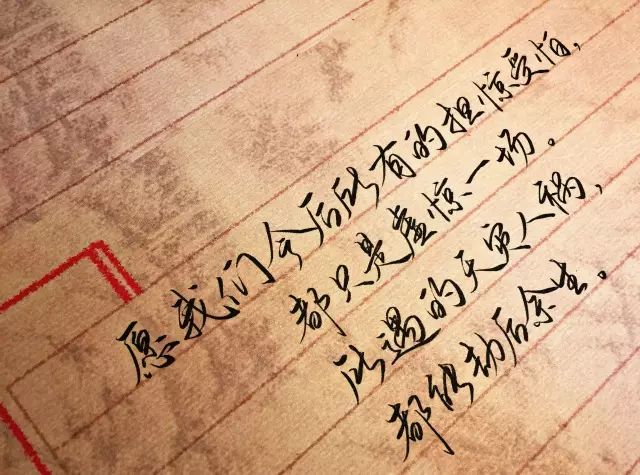 愿我们今后所有的担惊受怕，
都只是虚惊一场。
所遇的天灾人祸，
都能劫后余生。